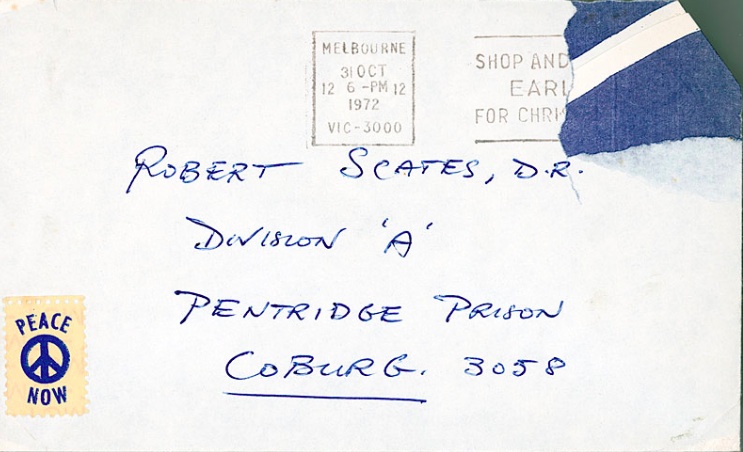 MELBOURNE
31 OCT
12 6-PM 12
1972
VIC-3000
SHOP AND
EARL
FOR CHRI
ROBERT SCATES, D.R.
DIVISION 'A'
PENTRIDGE PRISON
COBURG. 3058
PEACE
NOW